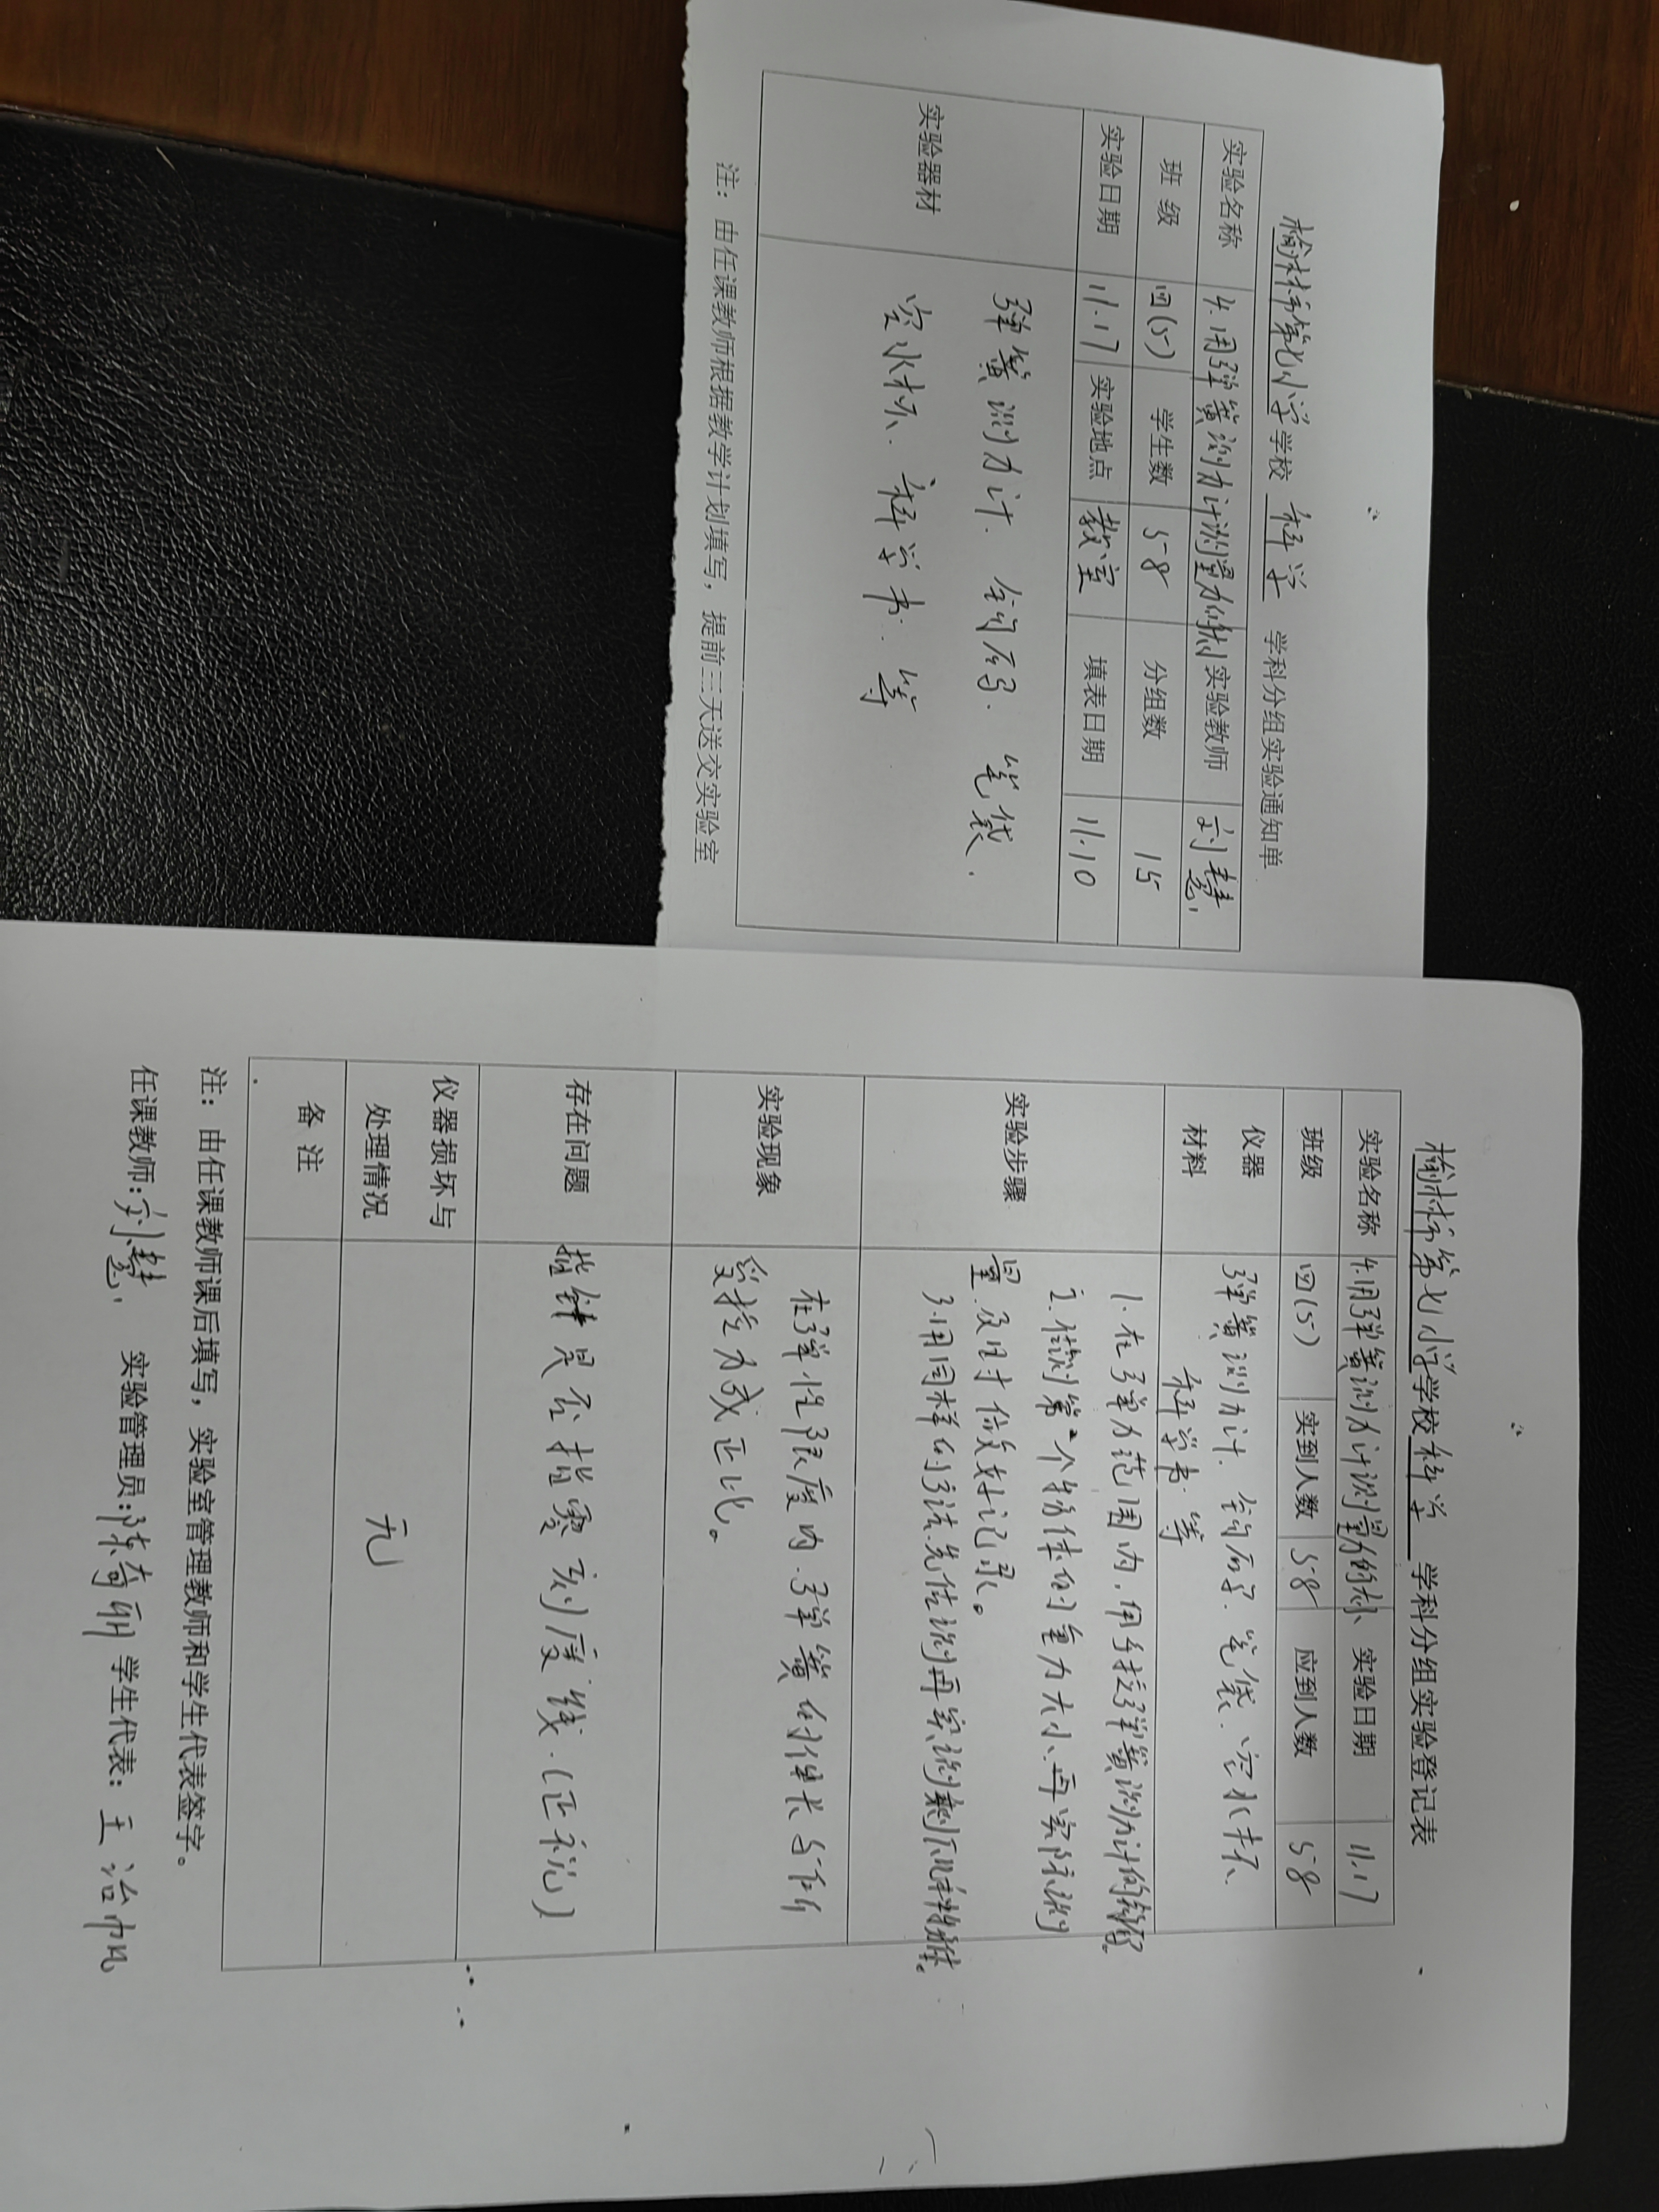 榆林市第七小学学校 科学 学科分组实验通知单
实验名称 4.用弹簧测力计测量力的大小 实验教师 刘慧
班 级 四(5) 学生数 58 分组数 15
实验日期 11.17 实验地点 教室 填表日期 11.10
实验器材 弹簧测力计、钩码、笔袋、
空水杯、科学书、等
注：由任课教师根据教学计划填写，提前三天送交实验室
榆林市第七小学学校 科学 学科分组实验登记表
实验名称 4.用弹簧测力计测量力的大小 实验日期 11.17
班级 四(5) 实到人数 58 应到人数 58
仪器
材料
弹簧测力计、钩码、笔袋、空水杯、
科学书、等
实验步骤
1.在弹力范围内，用手拉弹簧测力计的挂钩。
2.估测第2个物体的重力大小、再实际测
量.及时做好记录。
3.用同样的方法先估测再实测剩下几种物体。
实验现象
在弹性限度内.弹簧的伸长与所
受拉力成正比。
存在问题 指针是否指零刻度线.(正视)
仪器损坏与
处理情况
无
备 注
注：由任课教师课后填写，实验室管理教师和学生代表签字。
任课教师:刘慧 实验管理员:陈奇丽 学生代表：王治帆